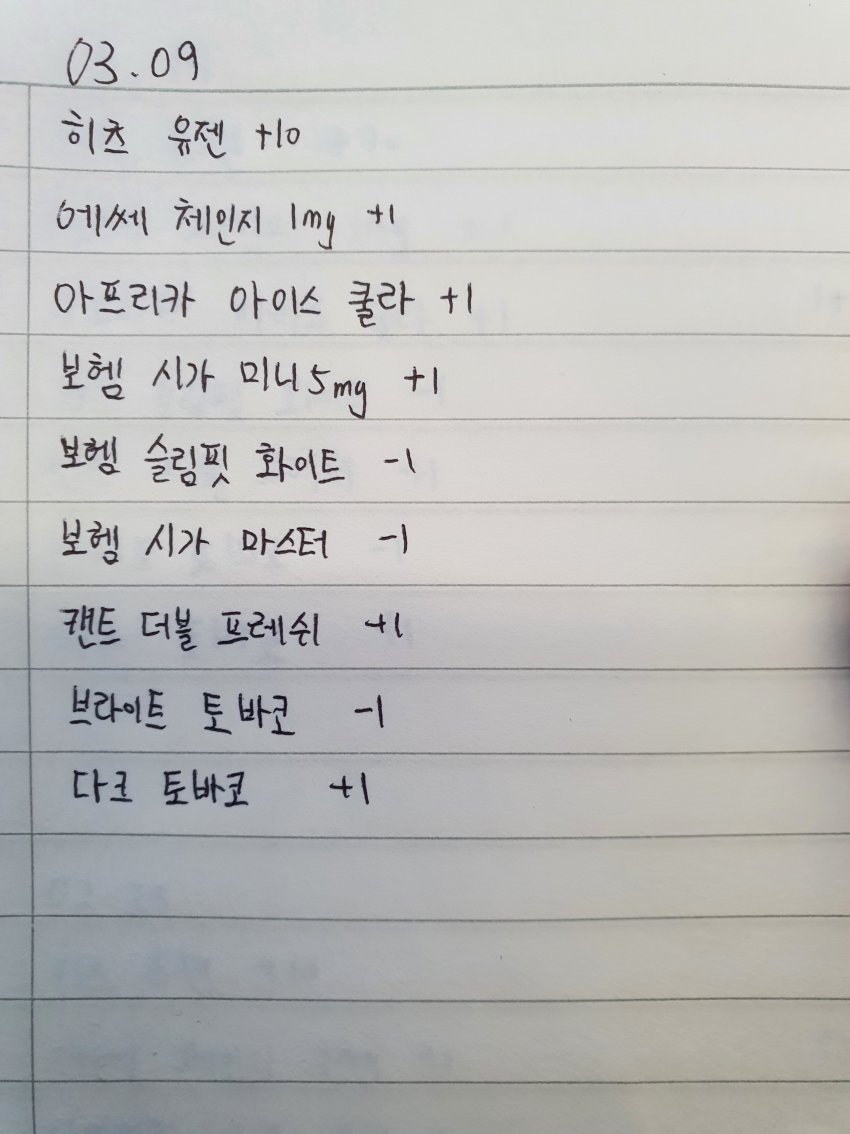 03.09
히츠 유젠 +10
에쎄 체인지 1mg +1
아프리카 아이스 쿨라 +1
보헴 시가 미니 5mg +1
보헴 슬림핏 화이트 -1
보헴 시가 마스터 -1
캔트 더블 프레쉬 +1
브라이트 토바코 -1
다크 토바코 +1